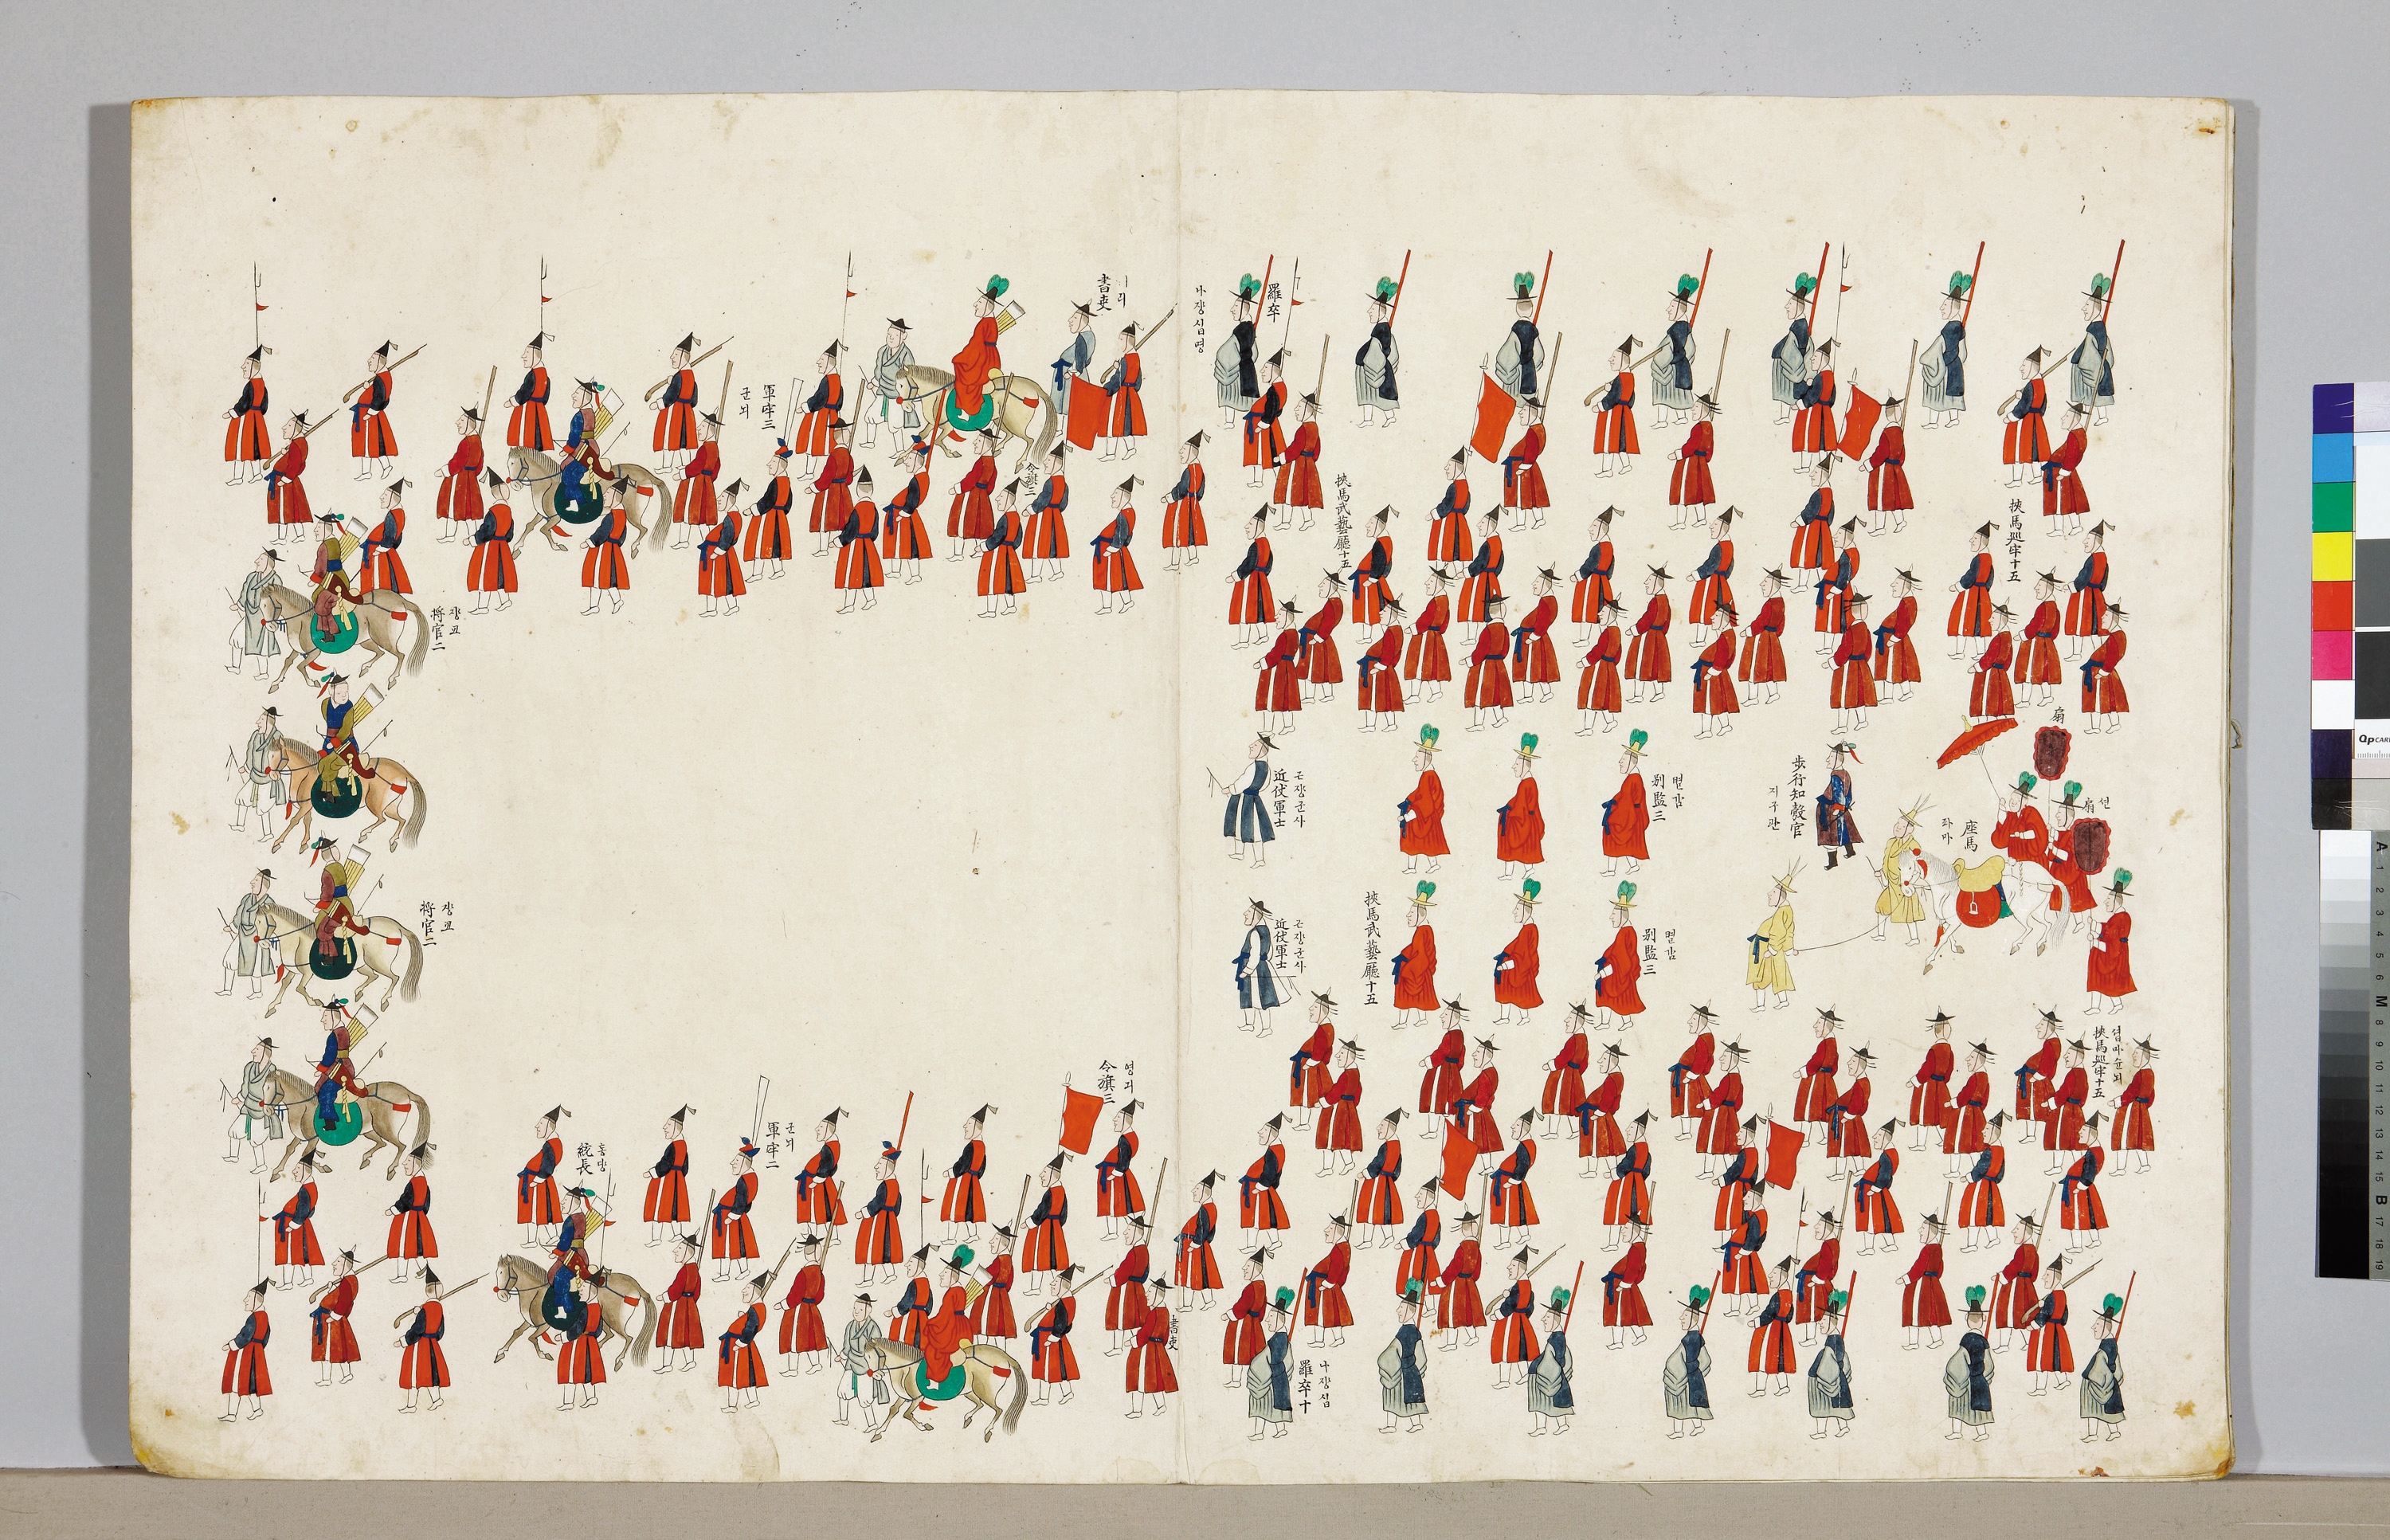 書吏
리
軍牢三
군뇌
令旗三
將官二
將官二
令旗三
영긔
軍牢二
군뇌
統長
書吏
羅卒
나쟝십명
挾馬武藝廳十五
挾馬巡牢十五
近仗軍士
근쟝군사
別監三
별감
步行知彀官
지구관
座馬
좌마
扇
扇
션
近仗軍士
근쟝군사
挾馬武藝廳十五
別監三
별감
挾馬巡牢十五
협마슌뇌
羅卒十
나쟝십
QPCARD
A 1 2 3 4 5 6 M 8 9 10 11 12 13 14 15 B 17 18 19